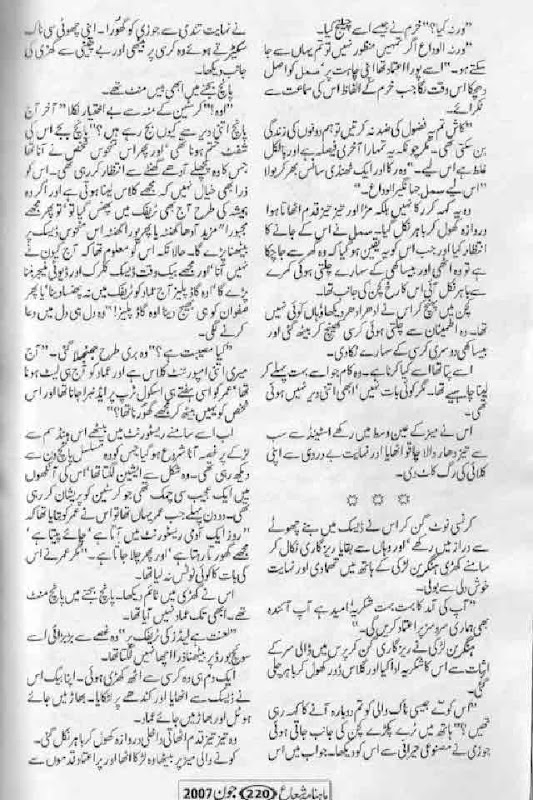 ”ورنہ کیا؟“ خرم نے جیسے اسے چیلنج کیا۔
”ورنہ الوداع اگر تمہیں منظور نہیں تو تم یہاں سے جا
سکتے ہو۔“ اسے پورا اعتماد تھا اپنی چاہت پر‘ سمل کو اصل
دھچکا اس وقت لگا جب خرم کے الفاظ اس کی سماعت سے
ٹکرائے۔
”کاش تم یہ فضول کی ضد نہ کرتیں تو ہم دونوں کی زندگی
بن سکتی تھی۔ مگر چونکہ یہ تمہارا آخری فیصلہ ہے اور بالکل
غلط ہے اس لیے۔“ وہ رکا اور ایک ٹھنڈی سانس بھر کر بولا
”اس لیے سمل جمانگیر الوداع۔“
وہ یہ کہہ کر رکا نہیں بلکہ مڑا اور تیز تیز قدم اٹھاتا ہوا
دروازہ کھول کر باہر نکل گیا۔ سمل نے اس کے جانے کا
انتظار کیا اور جب اس کو یہ یقین ہو گیا کہ وہ گھر سے جا چکا
ہے تو وہ اٹھی اور بیساکھی کے سہارے چلتی ہوئی کمرے
سے باہر نکل آئی اس کا رخ کچن کی جانب تھا۔
کچن میں پہنچ کر اس نے ادھر ادھر دیکھا وہاں کوئی نہیں
تھا۔ وہ اطمینان سے چلتی ہوئی کرسی کھینچ کر بیٹھ گئی اور
بیساکھی دوسری کرسی کے سہارے ٹکا دی۔
اسے پتا تھا اسے کیا کرنا ہے۔ وہ کام جو اسے بہت پہلے کر
لینا چاہیے تھا۔ مگر کوئی بات نہیں‘ ابھی اتنی دیر نہیں ہوئی
تھی۔
اس نے میز کے عین وسط میں رکھے اسٹینڈ سے سب
سے تیز دھار والا چاقو اٹھایا اور نہایت بے دردی سے اپنی
کلائی کی رگ کاٹ دی۔
☼ ☼ ☼
کرنسی نوٹ گن کر اس نے ڈیسک میں بنے چھوٹے
سے دراز میں رکھے‘ اور وہاں سے بقایا ریزگاری نکال کر
سامنے کھڑی ہنگیرین لڑکی کے ہاتھ میں تھما دی اور نہایت
خوش دلی سے بولی۔
”آپ کی آمد کا بہت بہت شکریہ‘ امید ہے آپ آئندہ
بھی ہماری سروسز پر اعتماد کریں گی۔“
ہنگیرین لڑکی نے ریزگاری گن کر پرس میں ڈالی سر کے
اثبات سے اس کا شکریہ ادا کیا اور گلاس ڈور کھول کر باہر چلی
گئی۔
”اس کوے جیسی ناک والی کو تم دوبارہ آنے کا کہہ رہی
تھیں؟“ ہاتھ میں ٹرے پکڑے کچن کی جانب جاتی ہوئی
جوزی نے مصنوعی حیرانی سے اس کو دیکھا۔ جواب میں اس
نے نہایت تندی سے جوزی کو گھورا۔ اپنی چھوٹی سی ناک
سکیڑتے ہوئے وہ کرسی پر بیٹھی اور بے یقینی سے گھڑی کی
جانب دیکھا۔
پانچ بجنے میں ابھی بیس منٹ تھے۔
”اوہ!“ کرسٹین کے منہ سے بے اختیار نکلا ”آخر آج
پانچ اتنی دیر سے کیوں بج رہے ہیں؟“ پانچ بجے اس کی
شفٹ ختم ہونا تھی‘ اور پھر اس منحوس شخص نے آنا تھا
جس کا وہ پچھلے آدھے گھنٹے سے انتظار کر رہی تھی۔ اس کو
ذرا بھی خیال نہیں کہ مجھے کلاس لینا ہوتی ہے اور اگر وہ
ہمیشہ کی طرح آج بھی ٹریفک میں پھنس گیا تو‘ تو پھر مجھے
مجبورا“ مزید آدھا گھنٹہ یا پھر پورا گھنٹہ اس منحوس ڈیسک پر
بیٹھنا پڑے گا۔ حالانکہ اس کو معلوم تھا کہ آج کیون نے
نہیں آنا‘ اور مجھے بیک وقت ڈیسک کلرک اور ڈیوٹی مینیجر بننا
پڑے گا ’اوہ گاڈ پلیز آج عماد کو ٹریفک میں نہ پھنسا دینا‘ یا پھر
صفوان کو ہی بھیج دینا اوہ گاڈ پلیز!“ وہ دل ہی دل میں دعا
کرنے لگی۔
”کیا مصیبت ہے؟“ وہ بری طرح جھنجھلا گئی۔ ”آج
میری اتنی امپورٹنٹ کلاس ہے اور عماد کو آج ہی لیٹ ہونا
تھا‘ عمر کو اسی ہفتے ہی اسکول ٹرپ پر ایڈنبرا جانا تھا اور اس
شخص کو یہیں بیٹھ کر مجھے گھورنا تھا؟“
اب اسے سامنے ریسٹورنٹ میں بیٹھے اس ہینڈسم سے
لڑکے پر غصہ آنا شروع ہو گیا جس کو وہ مسلسل پانچ دن سے
دیکھ رہی تھی۔ وہ شکل سے ایشین لگتا تھا‘ اس کی آنکھوں
میں ایک عجیب سی چمک تھی جو کرسٹین کو پریشان کر رہی
تھی۔ دو دن پہلے جب عمر یہاں تھا تو اس نے عمر کو بتایا تھا کہ
”روز ایک آدمی ریسٹورنٹ میں آتا ہے‘ چائے پیتا ہے‘
مجھے گھورتا رہتا ہے‘ اور پھر چلا جاتا ہے۔“ مگر عمر نے اس
کی بات کا کوئی نوٹس نہ لیا تھا۔
اس نے گھڑی میں ٹائم دیکھا۔ پانچ بجنے میں پانچ منٹ
تھے۔ ابھی تک عماد نہیں آیا تھا۔
”لعنت ہے لیڈز کی ٹریفک پر“ وہ غصے سے بڑبڑائی اسے
سوئچ بورڈ پر بیٹھنا ذرا اچھا نہیں لگتا تھا۔
ایک دم ہی وہ کرسی سے اٹھ کھڑی ہوئی۔ اپنا بیگ اس
نے ڈیسک سے اٹھایا اور کندھے پر لٹکایا۔ بھاڑ میں جائے
ہوٹل اور بھاڑ میں جائے عماد۔
وہ تیز تیز قدم اٹھاتی داخلی دروازہ کھول کر باہر نکل گئی۔
کونے والی میز پر بیٹھا وہ لڑکا اٹھا اور پر اعتماد قدموں سے
ماہنامہ شعاع 220 جون 2007